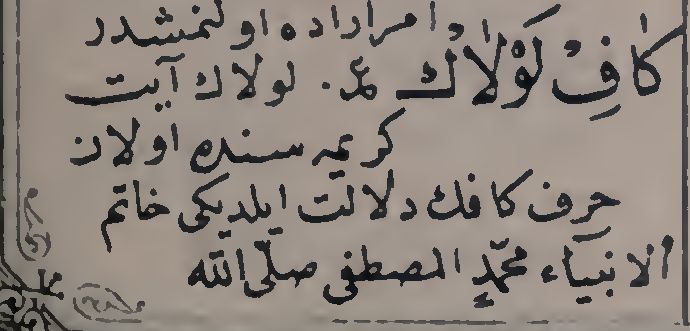 امر اراده اولنمشدر
كَافِ لَوْلَاكْ لولاك آيت
كريمه سنده اولان
حرف كافك دلالت ايلديكى خاتم
الانبياء محمّد المصطفى صلّى الله